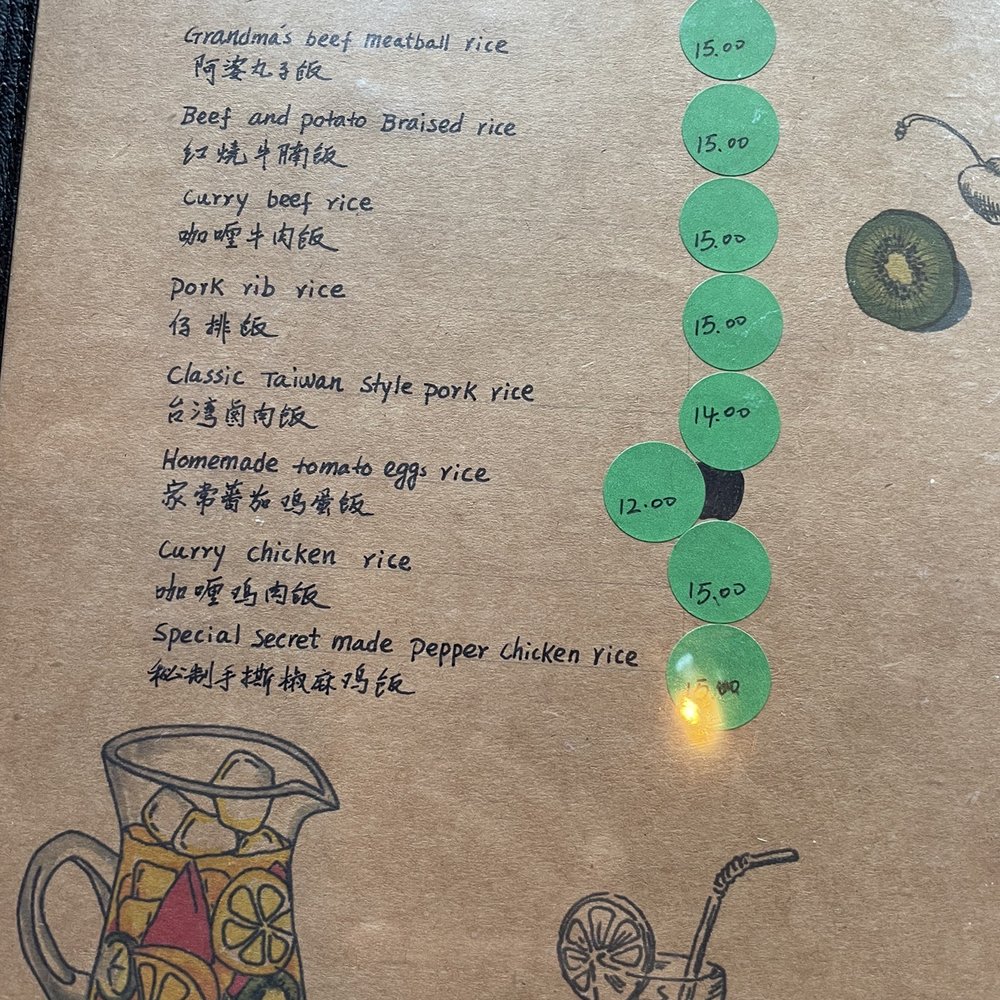 Grandma's beef meatball rice 15.00
阿婆丸子饭
Beef and potato Braised rice 15.00
红烧牛腩饭
Curry beef rice 15.00
咖喱牛肉饭
Pork rib rice 15.00
仔排饭
Classic Taiwan style pork rice 14.00
台湾卤肉饭
Homemade tomato eggs rice 12.00
家常蕃茄鸡蛋饭
Curry chicken rice 15.00
咖喱鸡肉饭
Special secret made pepper chicken rice 15.00
秘制手撕椒麻鸡饭